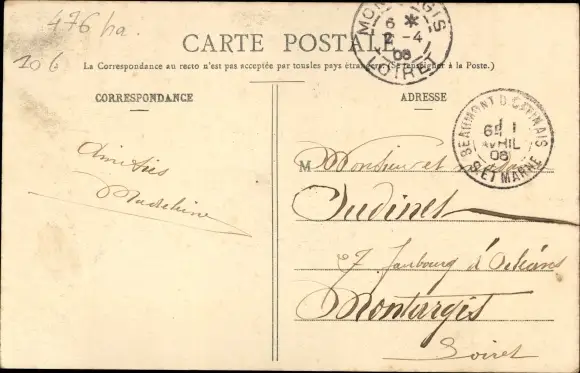 476 ha.
106
MONTARGIS
6 *
2 -4
08
LOIRET
CARTE POSTALE
La Correspondance au recto n'est pas acceptée par tous les pays étrangers. (Se renseigner à la Poste.)
CORRESPONDANCE
ADRESSE
BEAUMONT D GATINAIS
AVRIL
08
S. ET MARNE
Amitiés
Madeleine
M Monsieur et
Oudinet
7 faubourg d'Orléans
Montargis
Loiret